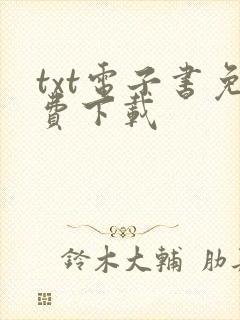 txt電子書免
費下載
鈴木大輔 肋